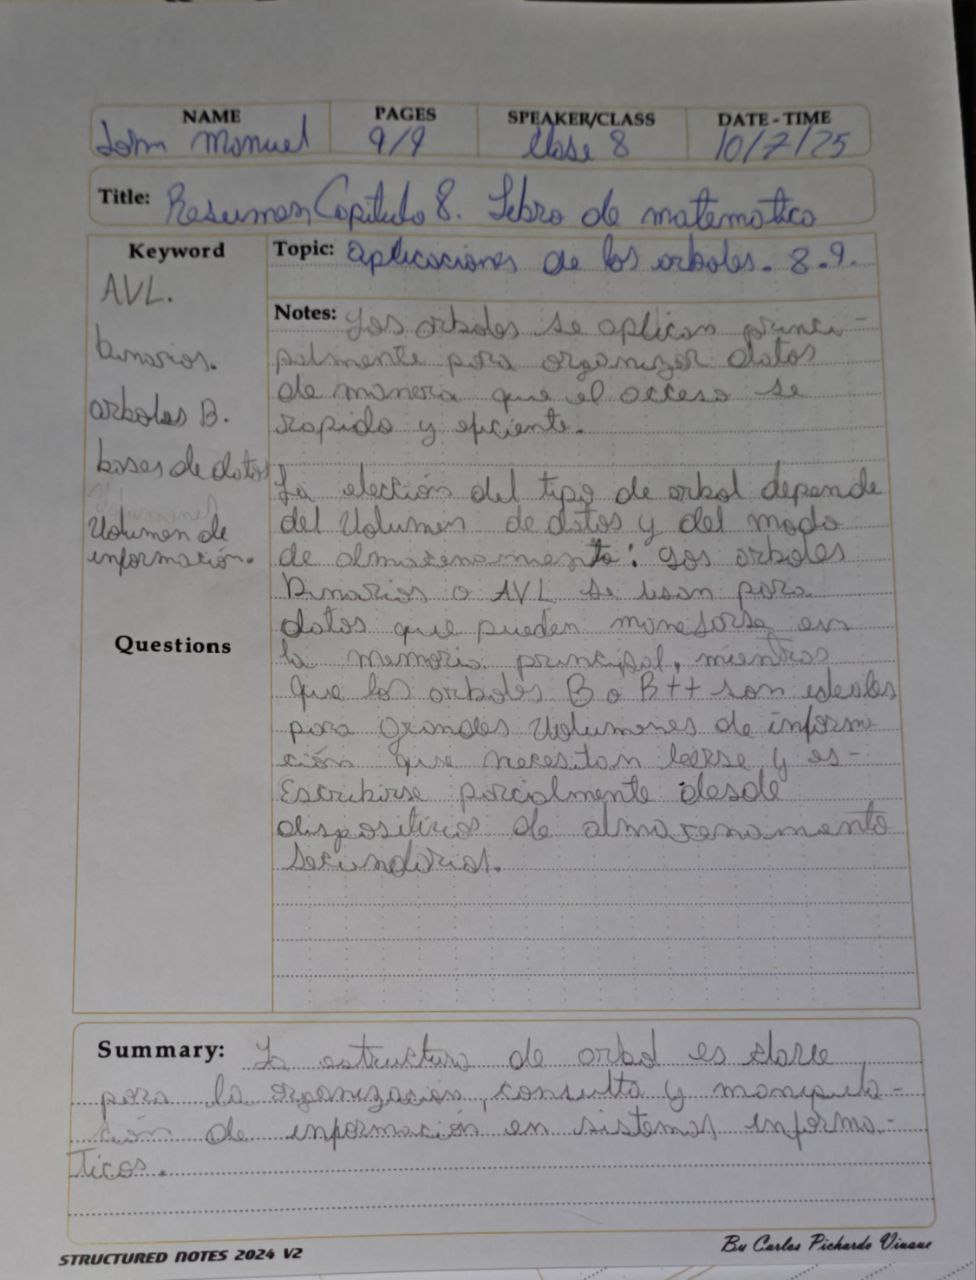 NAME PAGES SPEAKER/CLASS DATE - TIME
John Manuel 9/9 Clase 8 10/7/25
Title: Resumen Capitulo 8. Libro de matematica
Keyword
AVL.
binarios.
arboles B.
bases de datos
Volumen de
información.
Questions
Topic: aplicaciones de los arboles. 8.9.
Notes: Los arboles se aplican princi-
palmente para organizar datos
de manera que el acceso se
rapido y eficiente.
La elección del tipo de arbol depende
del Volumen de datos y del modo
de almacenamiento: Los arboles
Binarios o AVL se usan para
datos que pueden manejarse en
la memoria principal, mientras
que los arboles B o B++ son ideales
para Grandes Volumenes de informa
ción que necesitan leerse y es-
Escribirse parcialmente desde
dispositivos de almacenamiento
secundarios.
Summary: La estructura de arbol es clave
para la organización, consulta y manipula-
ción de información en sistemas informa-
ticos.
STRUCTURED NOTES 2024 V2
By Carlos Pichardo Viuque